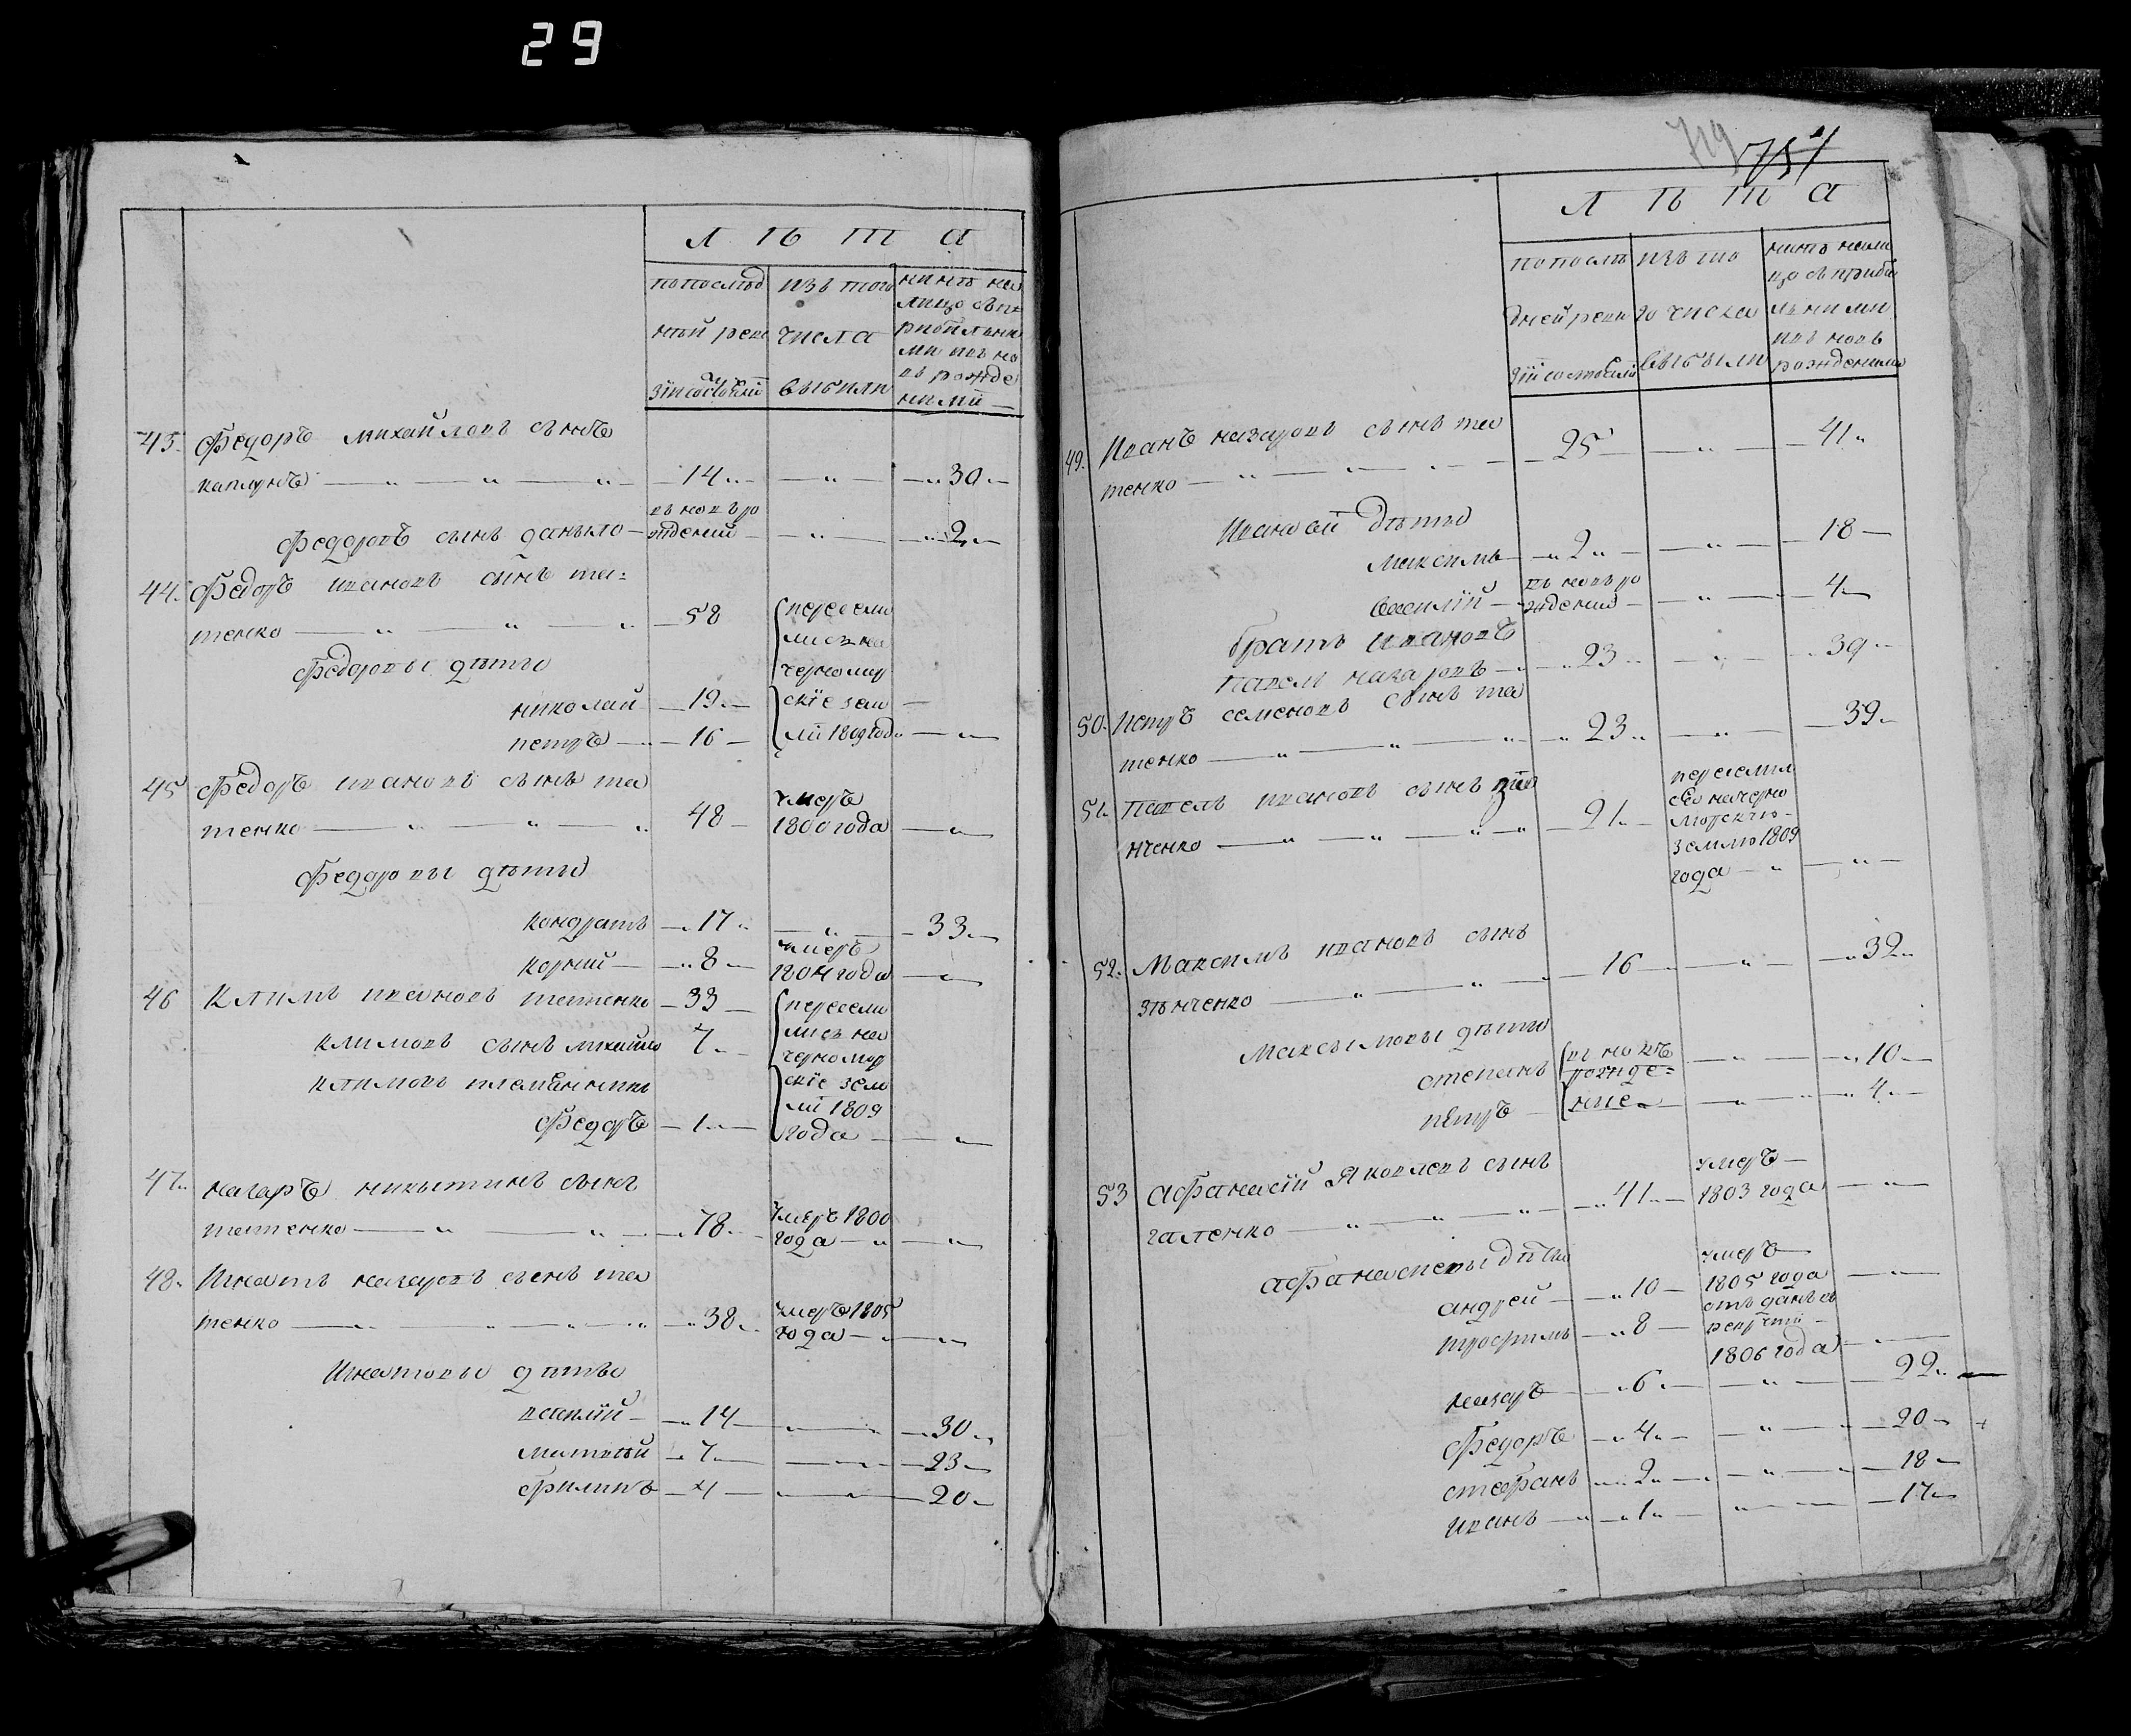 29
Л Ѣ Т А
по послѣд
ней реви
зіи состояли
изъ того
числа
выбыли
нынѣ на
лицо съ п
рибылы
ми и въ но
въ рожде
ними
43. Федоръ михайловъ сынъ
каплунъ 14 30
Федоровъ сынъ даныло въ новъ ро
ждений 2
44. Федоръ ивановъ сынъ та=
тенко 58 пересели
лись на
Федоровы дѣти черномор
николай 19 скіе зем
петръ 16 ли 1809 год
45 Федоръ ивановъ сынъ та
тенко 48 умеръ
1800 года
Федоровы дѣти
кондратъ 17 33
корний 8 умеръ
1804 года
46 Климъ ивановъ татенко 33 пересели
климовъ сынъ михайло 7 лись на
черномор
климовъ племянникъ скіе зем
ли 1809
Федоръ 1 года
47 назаръ никытинъ сынъ
татенко 78 умеръ 1800
года
48. Игнатъ назаровъ сынъ та
тенко 38 умеръ 1805
года
Игнатовы дѣти
василій 14 30
матвѣй 7 23
филипъ 4 20
719 751
Л Ѣ Т А
по послѣ
дней реви
зіи состояли
изъ то
го числа
выбыли
нынѣ нали
цо съ прибы
лыми
и въ новь
рожденными
49. Иванъ назаровъ сынъ та
тенко 25 41
Ивановы дѣти
максимъ 2 18
василій въ новъ ро
ждений 4
братъ ивановъ
павелъ назаровъ 23 39
50. Петръ семеновъ сынъ та
тенко 23 39
51. Павелъ ивановъ сынъ зѣ
нченко 21 переселил
ся на черно
морскую
землю 1809
года
52. Максимъ ивановъ сынъ
зѣнченко 16 32
Максымовы дѣти
степанъ въ новъ
рожде= 10
петръ ние 4
53 Афанасій Яковлевъ сынъ
галенко 41 умеръ
1803 года
афанасиевы дѣти
андрей 10 умеръ
1805 года
трофимъ 8 отъ данъ въ
рекруты
1806 года
назаръ 6 22
Федоръ 4 20
стефанъ 2 18
иванъ 1 17